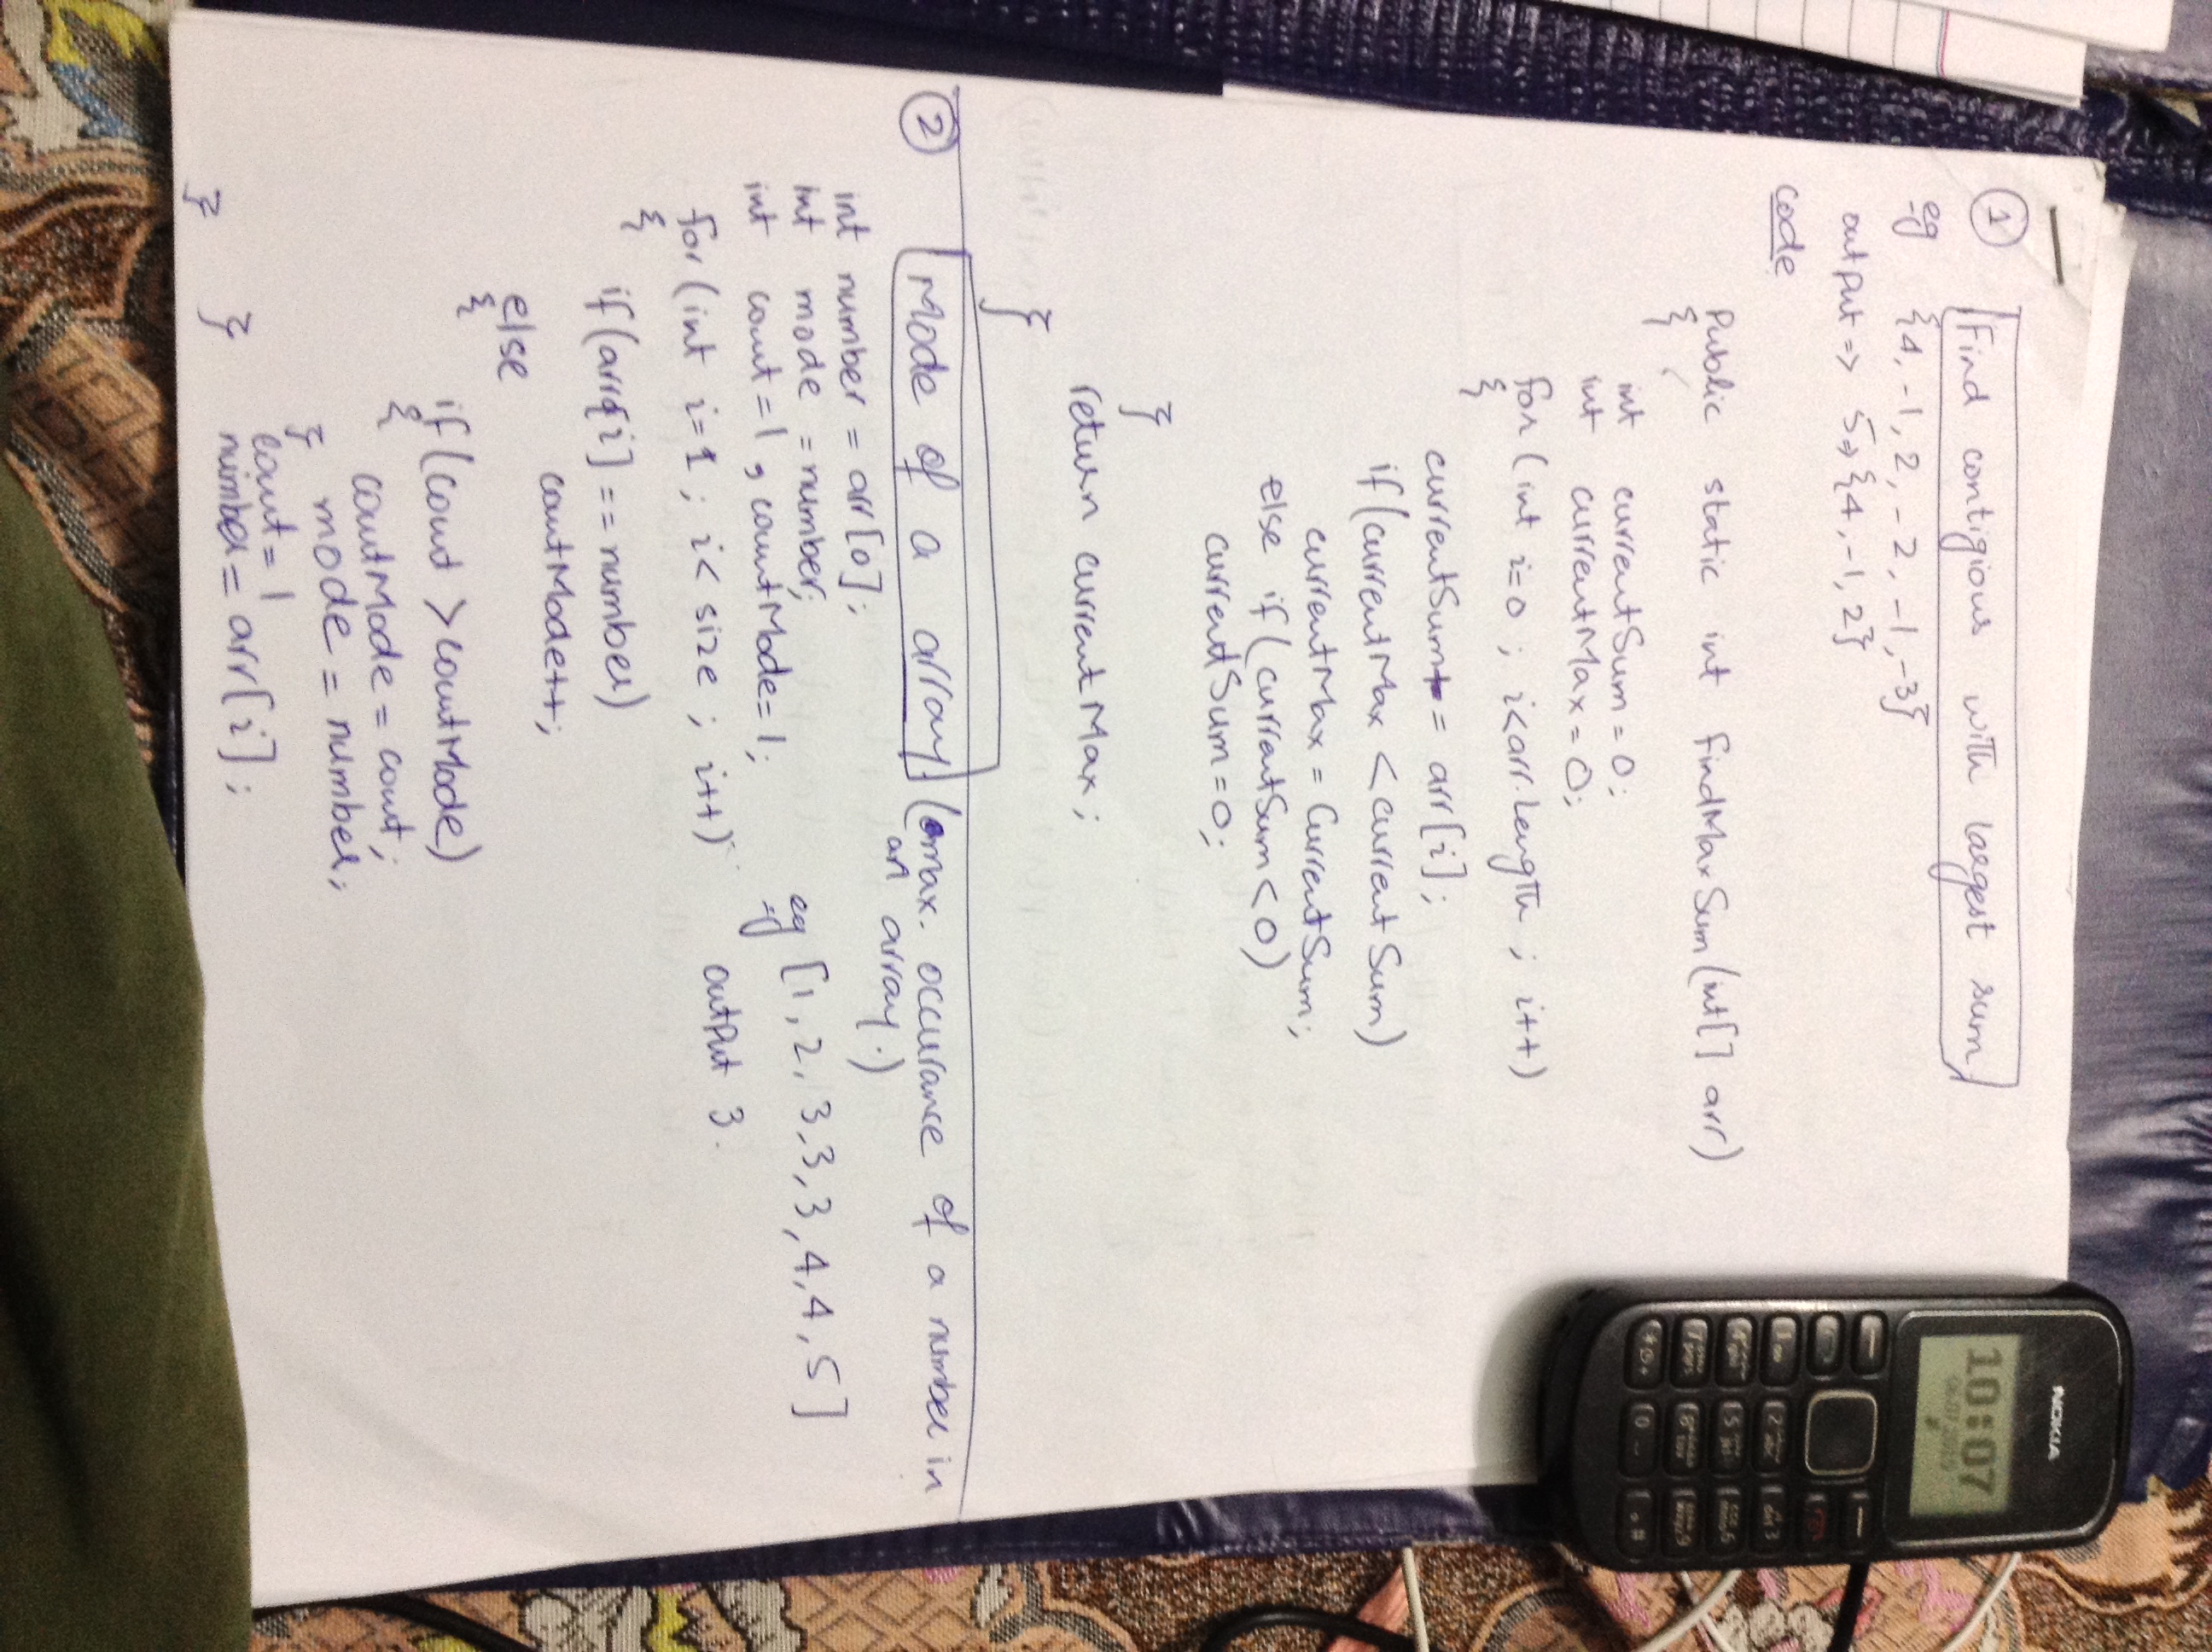 1 Find contigious with largest sum.
eg {4, -1, 2, -2, -1, -3}
output => 5 => {4, -1, 2}
code
Public static int findMaxSum(int[] arr)
{
int currentSum = 0;
int currentMax = 0;
for (int i=0 ; i<arr.Length ; i++)
{
currentSum+ = arr[i];
if(currentMax < currentSum)
currentMax = CurrentSum;
else if(currentSum<0)
currentSum = 0;
}
return currentMax;
}
2 Mode of a array. (max. occurance of a number in
an array.)
int number = arr[0];
int mode = number;
int count = 1, countMode = 1;
eg [1, 2, 3, 3, 3, 4, 4, 5]
output 3.
for (int i=1 ; i< size ; i++)
{
if(arr[i] == number)
countMode++;
else
{
if(count > countMode)
{
countMode = count;
mode = number;
}
count = 1
number = arr[i];
}
}
NOKIA
10:07